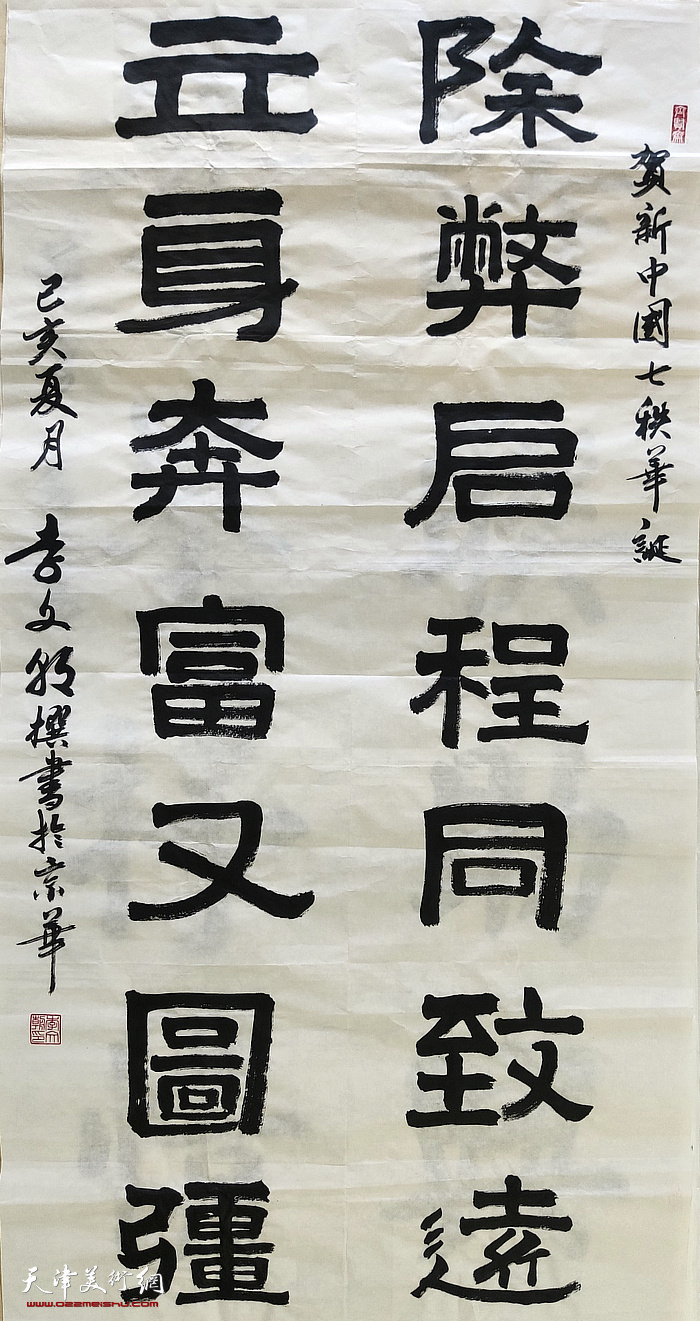 贺新中國七秩華誕
除弊启程同致遠
立身奔富又圖彊
己亥夏月 李文朝撰書於京華
李文朝印
天津美術網
www.022meishu.com